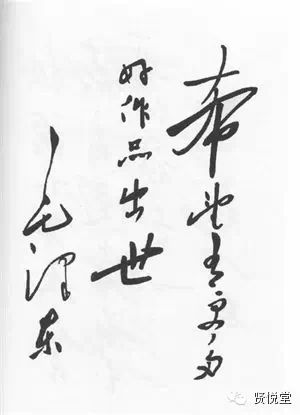 希望有更多
好作品出世
毛泽东
贤悦堂